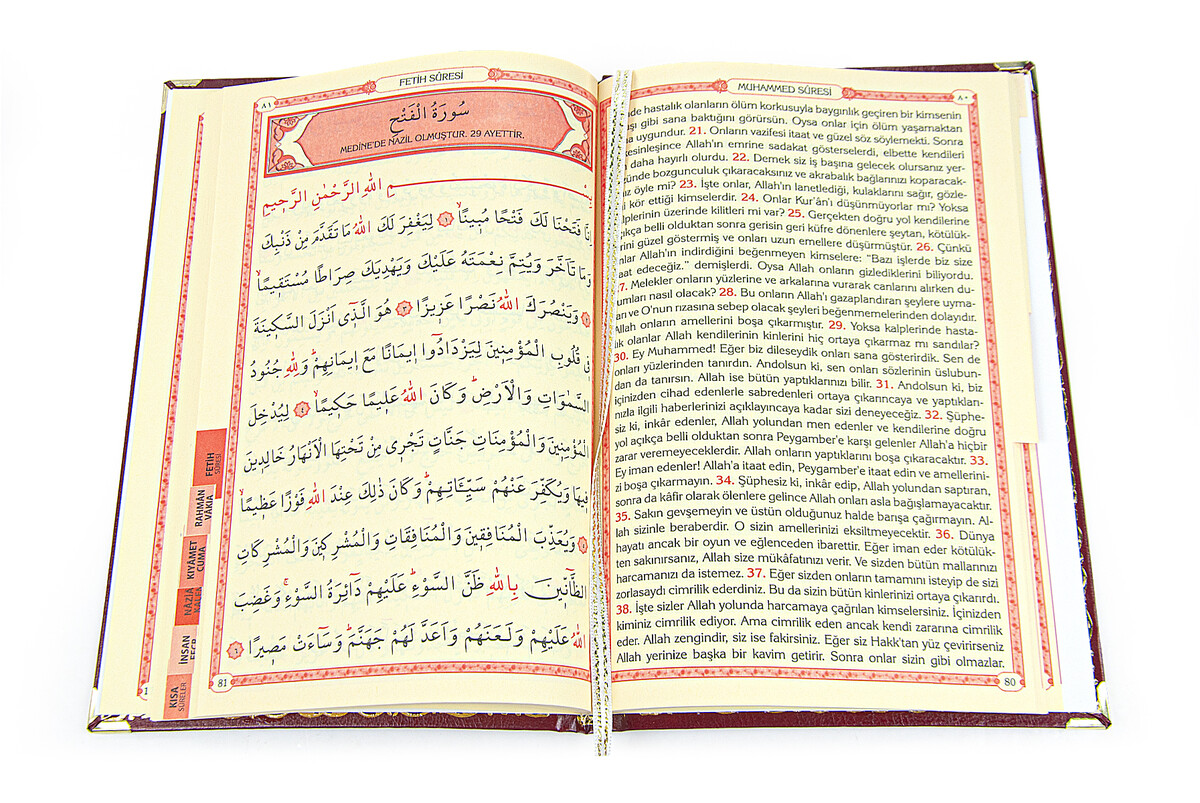 FETİH SÛRESİ
٨١
سُورَةُ الْفَتْحِ
MEDİNE'DE NAZİL OLMUŞTUR. 29 AYETTİR.
بِسْــــــمِ اللهِ الرَّحْمٰنِ الرَّحِيمِ
اِنَّا فَتَحْنَا لَكَ فَتْحًا مُبِينًاۙ ﴿١﴾ لِيَغْفِرَ لَكَ اللهُ مَا تَقَدَّمَ مِنْ ذَنْبِكَ
وَمَا تَاَخَّرَ وَيُتِمَّ نِعْمَتَهُ عَلَيْكَ وَيَهْدِيَكَ صِرَاطًا مُسْتَقِيمًاۙ
﴿٢﴾ وَيَنْصُرَكَ اللهُ نَصْرًا عَزِيزًا ﴿٣﴾ هُوَ الَّذِٓي اَنْزَلَ السَّكِينَةَ
فِي قُلُوبِ الْمُؤْمِنِينَ لِيَزْدَادُٓوا اِيمَانًا مَعَ اِيمَانِهِمْۜ وَلِلهِ جُنُودُ
السَّمٰوَاتِ وَالْاَرْضِۜ وَكَانَ اللهُ عَلِيمًا حَكِيمًاۙ ﴿٤﴾ لِيُدْخِلَ
الْمُؤْمِنِينَ وَالْمُؤْمِنَاتِ جَنَّاتٍ تَجْرِي مِنْ تَحْتِهَا الْاَنْهَارُ خَالِدِينَ
فِيهَا وَيُكَفِّرَ عَنْهُمْ سَيِّـَٔاتِهِمْۜ وَكَانَ ذٰلِكَ عِنْدَ اللهِ فَوْزًا عَظِيمًاۙ
﴿٥﴾ وَيُعَذِّبَ الْمُنَافِقِينَ وَالْمُنَافِقَاتِ وَالْمُشْرِكِينَ وَالْمُشْرِكَاتِ
الظَّٓانِّينَ بِاللهِ ظَنَّ السَّوْءِۜ عَلَيْهِمْ دَٓائِرَةُ السَّوْءِۚ وَغَضِبَ
اللهُ عَلَيْهِمْ وَلَعَنَهُمْ وَاَعَدَّ لَهُمْ جَهَنَّمَۜ وَسَٓاءَتْ مَصِيرًا ﴿٦﴾
81
FETİH
SÛRESİ
RAHMÂN
VÂKIA
KIYÂMET
CUMA
İNSAN
KISA
SÛRELER
MUHAMMED SÛRESİ
٨٠
de hastalık olanların ölüm korkusuyla baygınlık geçiren bir kimsenin
şı gibi sana baktığını görürsün. Oysa onlar için ölüm yaşamaktan
a uygundur. 21. Onların vazifesi itaat ve güzel söz söylemekti. Sonra
esinleşince Allah'ın emrine sadakat gösterselerdi, elbette kendileri
daha hayırlı olurdu. 22. Demek siz iş başına gelecek olursanız yer-
ünde bozgunculuk çıkaracaksınız ve akrabalık bağlarınızı koparacak-
ız öyle mi? 23. İşte onlar, Allah'ın lanetlediği, kulaklarını sağır, gözle-
i kör ettiği kimselerdir. 24. Onlar Kur'ân'ı düşünmüyorlar mı? Yoksa
lplerinin üzerinde kilitleri mi var? 25. Gerçekten doğru yol kendilerine
çıkça belli olduktan sonra gerisin geri küfre dönenlere şeytan, kötülük-
rini güzel göstermiş ve onları uzun emellere düşürmüştür. 26. Çünkü
nlar Allah'ın indirdiğini beğenmeyen kimselere: "Bazı işlerde biz size
aat edeceğiz." demişlerdi. Oysa Allah onların gizlediklerini biliyordu.
7. Melekler onların yüzlerine ve arkalarına vurarak canlarını alırken du-
umları nasıl olacak? 28. Bu onların Allah'ı gazaplandıran şeylere uyma-
arı ve O'nun rızasına sebep olacak şeyleri beğenmemelerinden dolayıdır.
Allah onların amellerini boşa çıkarmıştır. 29. Yoksa kalplerinde hasta-
lık olanlar Allah kendilerinin kinlerini hiç ortaya çıkarmaz mı sandılar?
30. Ey Muhammed! Eğer biz dileseydik onları sana gösterirdik. Sen de
onları yüzlerinden tanırdın. Andolsun ki, sen onları sözlerinin üslubun-
dan da tanırsın. Allah ise bütün yaptıklarınızı bilir. 31. Andolsun ki, biz
içinizden cihad edenlerle sabredenleri ortaya çıkarıncaya ve yaptıkları-
nızla ilgili haberlerinizi açıklayıncaya kadar sizi deneyeceğiz. 32. Şüphe-
siz ki, inkâr edenler, Allah yolundan men edenler ve kendilerine doğru
yol açıkça belli olduktan sonra Peygamber'e karşı gelenler Allah'a hiçbir
zarar veremeyeceklerdir. Allah onların yaptıklarını boşa çıkaracaktır. 33.
Ey iman edenler! Allah'a itaat edin, Peygamber'e itaat edin ve amellerini-
zi boşa çıkarmayın. 34. Şüphesiz ki, inkâr edip, Allah yolundan saptıran,
sonra da kâfir olarak ölenlere gelince Allah onları asla bağışlamayacaktır.
35. Sakın gevşemeyin ve üstün olduğunuz halde barışa çağırmayın. Al-
lah sizinle beraberdir. O sizin amellerinizi eksiltmeyecektir. 36. Dünya
hayatı ancak bir oyun ve eğlenceden ibarettir. Eğer iman eder kötülük-
ten sakınırsanız, Allah size mükâfatınızı verir. Ve sizden bütün mallarınızı
harcamanızı da istemez. 37. Eğer sizden onların tamamını isteyip de sizi
zorlasaydı cimrilik ederdiniz. Bu da sizin bütün kinlerinizi ortaya çıkarırdı.
38. İşte sizler Allah yolunda harcamaya çağrılan kimselersiniz. İçinizden
kiminiz cimrilik ediyor. Ama cimrilik eden ancak kendi zararına cimrilik
eder. Allah zengindir, siz ise fakirsiniz. Eğer siz Hakk'tan yüz çevirirseniz
Allah yerinize başka bir kavim getirir. Sonra onlar sizin gibi olmazlar.
80